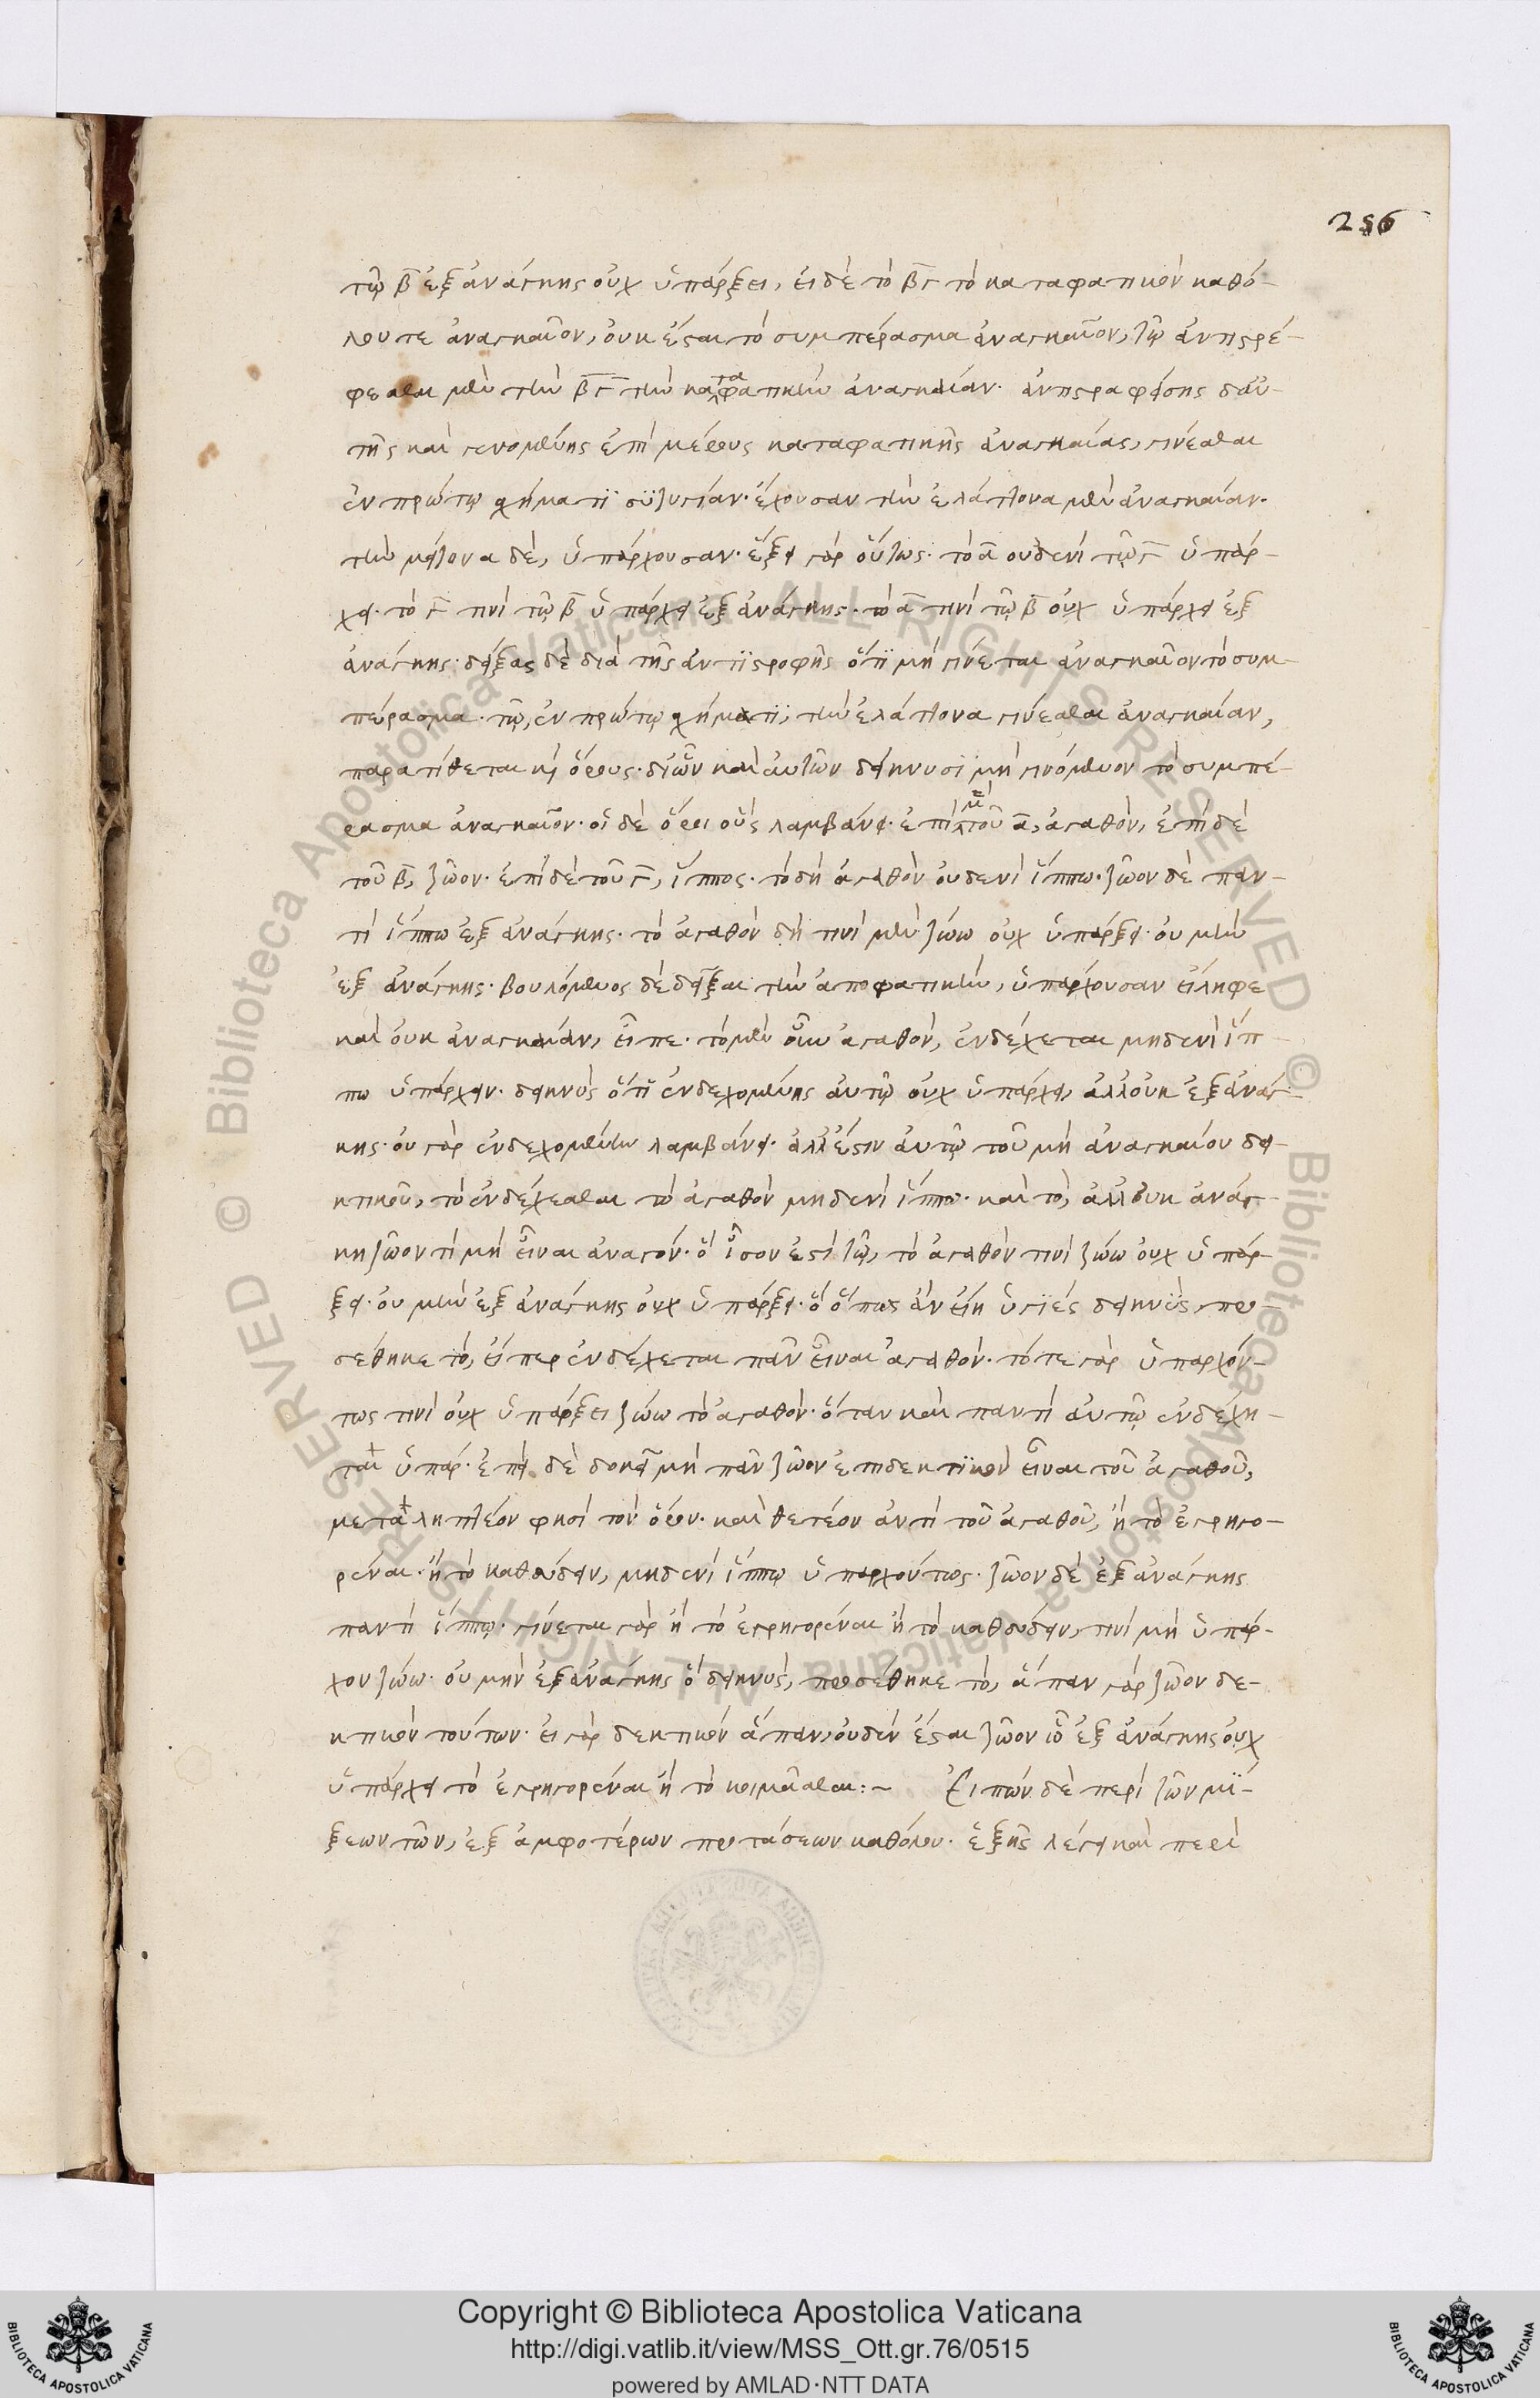 256
τῷ β̅ ἐξ ἀνάγκης οὐχ ὑπάρξει, εἰ δὲ τὸ β̅γ̅ τὸ καταφατικὸν καθό-
λου τε ἀναγκαῖον, οὐκ ἔσται τὸ συμπέρασμα ἀναγκαῖον, τῷ ἀντιστρέ-
φεσθαι μὲν τὴν β̅γ̅ τὴν καταφατικὴν ἀναγκαίαν. ἀντιστραφείσης δ' αὐ-
τῆς καὶ γενομένης ἐπὶ μέρους καταφατικῆς ἀναγκαίας, γίνεσθαι
ἐν πρώτῳ σχήματϊ συζυγίαν. ἔχουσαν τὴν ἐλάττονα μὲν ἀναγκαίαν.
τὴν μείζονα δὲ, ὑπάρχουσαν. ἕξει γὰρ οὕτως. τὸ α̅ ουδενὶ τῷ γ̅ ὑπάρ-
χει. τὸ γ̅ τινὶ τῷ β̅ ὑπάρχει ἐξ ἀνάγκης. τὸ α̅ τινὶ τῷ β̅ οὐχ ὑπάρχει ἐξ
ἀνάγκης. δείξας δὲ διὰ τῆς ἀντϊστροφῆς ὅτϊ μὴ γίνεται ἀναγκαῖον τὸ συμ-
πέρασμα. τῷ, ἐν πρώτῳ σχήματϊ, τὴν ἐλάττονα γίνεσθαι ἀναγκαίαν,
παρατίθεται κỳ ὅρους. δι' ὧν καὶ αὐτῶν δείκνυσι μὴ γινόμενον τὸ συμπέ-
ρασμα ἀναγκαῖον. οἱ δὲ ὅροι οὓς λαμβάνει. ἐπὶ μὲν τοῦ α̅, ἀγαθὸν, ἐπὶ δὲ
τοῦ β̅, ζῶον. ἐπὶ δὲ τοῦ γ̅, ἵππος. τὸ δὴ ἀγαθὸν ουδενὶ ἵππω. ζῶον δὲ παν-
τὶ ἵππω ἐξ ἀνάγκης. τὸ ἀγαθὸν δὴ τινὶ μὲν ζώω οὐχ ὑπάρξει. ου μὴν
ἐξ ἀνάγκης. βουλόμενος δὲ δεῖξαι τὴν ἀποφατικὴν, ὑπάρχουσαν εἴληφε
καὶ οὐκ ἀναγκαίαν, εἶπε. τὸ μὲν οὖν ἀγαθὸν, ἐνδέχεται μηδενὶ ἵπ-
πω ὑπάρχειν. δεικνὺς ὅτϊ ἐνδεχομένης αὐτῷ οὐχ ὑπάρχει, ἀλλ' οὐκ ἐξ ἀνάγ-
κης. οὐ γὰρ ἐνδεχομένην λαμβάνει. ἀλλ' ἔστιν αὐτῷ τοῦ μὴ ἀναγκαίου δει-
κτικοῦ, τὸ ἐνδέχεσθαι τὸ ἀγαθὸν μηδενὶ ἵππω. καὶ τὸ, ἀλλ' οὐκ ἀνάγ-
κη ζῶον τὶ μὴ εἶναι ἀγαθόν. ὃ ἶσον ἐστὶ τῷ, τὸ ἀγαθὸν τινὶ ζώω οὐχ ὑπάρ-
ξει. οὐ μὴν ἐξ ἀνάγκης οὐχ ὑπάρξει. ὃ ὅπως ἂν εἴη ὑγϊὲς δεικνὺς, προ-
σέθηκε τὸ, εἴπερ ἐνδέχεται πᾶν εἶναι ἀγαθὸν. τότε γὰρ ὑπαρχόν-
τως τινὶ οὐχ ὑπάρξει ζώω τὸ ἀγαθὸν. ὅταν καὶ παντὶ αὐτῷ ἐνδέχη-
ται ὑπάρ. ἐπεὶ δὲ δοκεῖ μὴ πᾶν ζῶον ἐπιδεκτϊκὸν εἶναι τοῦ ἀγαθοῦ,
μεταληπτέον φησὶ τὸν ὅρον. καὶ θετέον ἀντὶ τοῦ ἀγαθοῦ, ἢ τὸ ἐγρηγο-
ρέναι. ἢ τὸ καθεύδειν, μηδενὶ ἵππῳ ὑπαρχόντως. ζῶον δὲ ἐξ ἀνάγκης
παντὶ ἵππῳ. γίνεται γὰρ ἢ τὸ ἐγρηγορέναι ἢ τὸ καθεύδειν, τινὶ μὴ ὑπάρ-
χον ζώω. οὐ μὴν ἐξ ἀνάγκης ὃ δεικνὺς, προσέθηκε τὸ, ἅπαν γὰρ ζῶον δε-
κτικὸν τούτων. εἰ γὰρ δεκτικὸν ἅπαν, οὐδὲν ἔσται ζῶον ᾧ ἐξ ἀνάγκης οὐχ
ὑπάρχει τὸ ἐγρηγορέναι ἢ τὸ κοιμᾶσθαι:~ Εἰπὼν δὲ περὶ τῶν μΐ-
ξεων τῶν, ἐξ ἀμφοτέρων προτάσεων καθόλου. ἑξῆς λέγει καὶ περὶ
Copyright © Biblioteca Apostolica Vaticana
http://digi.vatlib.it/view/MSS_Ott.gr.76/0515
powered by AMLAD·NTT DATA